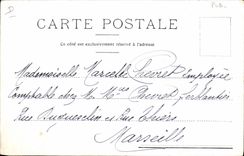 CARTE POSTALE
Ce côté est exclusivement réservé à l'adresse
Mademoiselle Marcelle employée
Comptable chez M.
Rue Duguesclin et Rue Thiers
Marseille